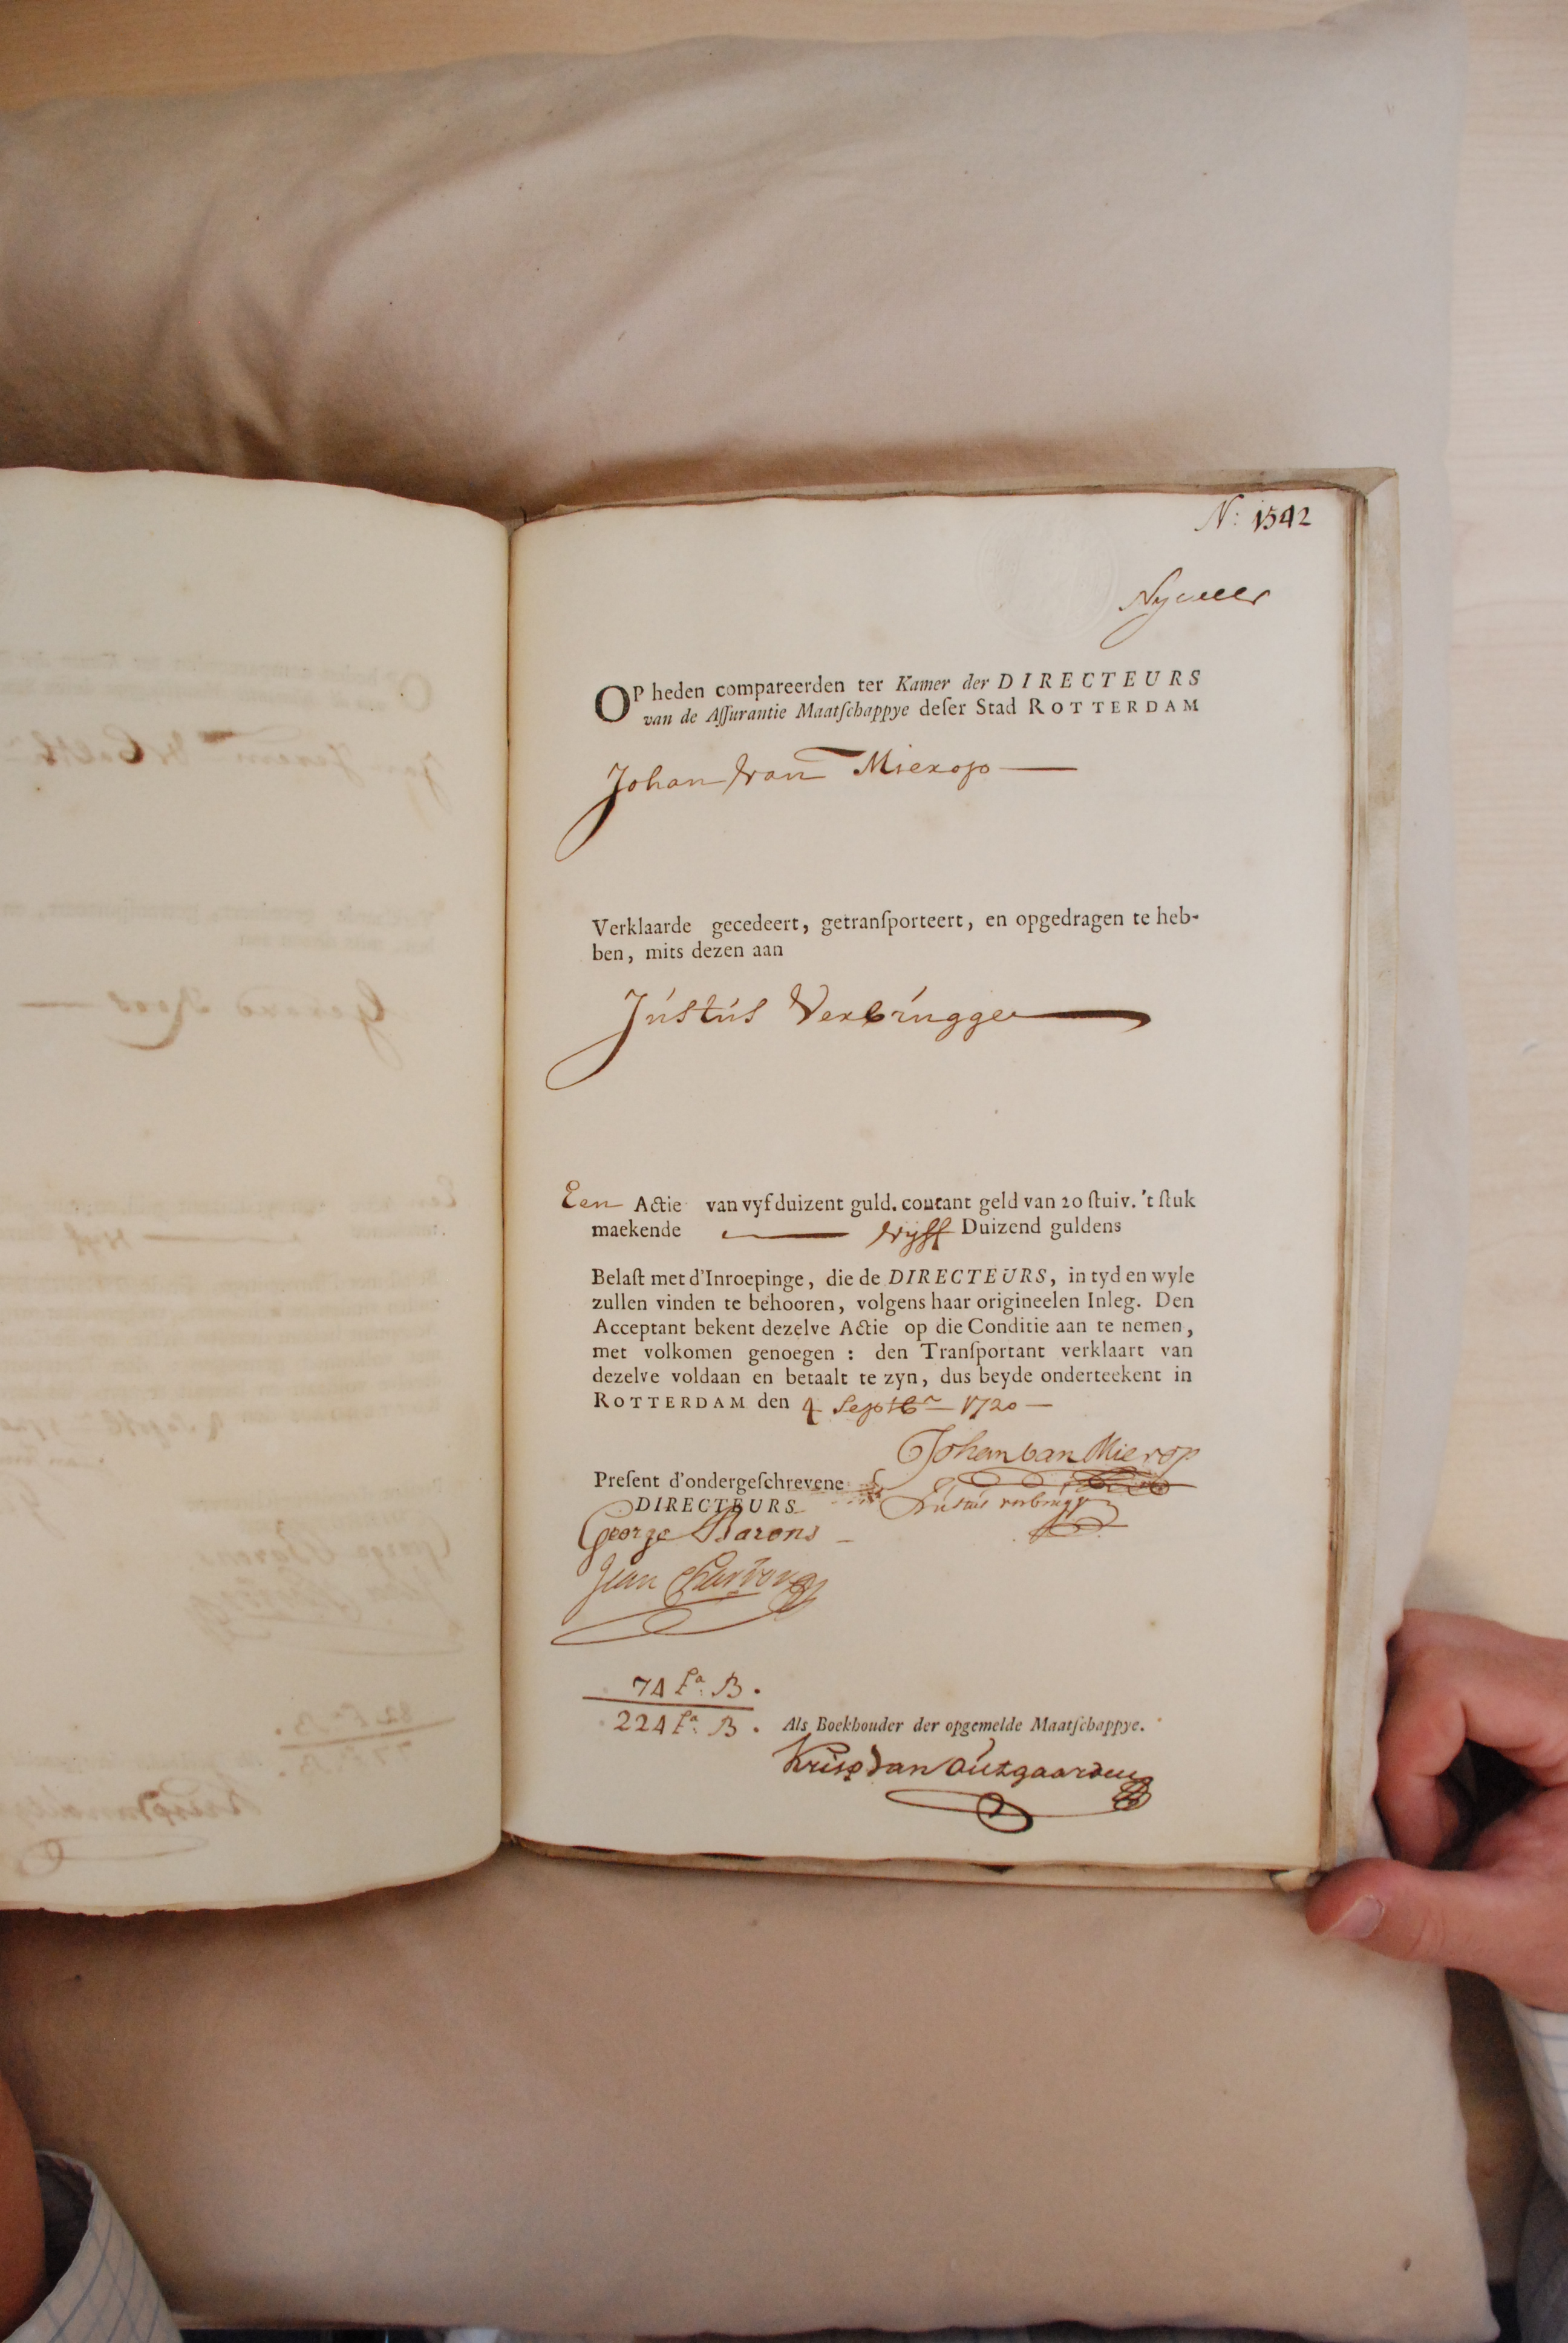 N: 1542
OP heden compareerden ter Kamer der DIRECTEURS
van de Aſſurantie Maatſchappye deſer Stad ROTTERDAM
Johan van Mierop
Verklaarde gecedeert, getranſporteert, en opgedragen te heb-
ben, mits dezen aan
Justus Verbrugge
Een Actie van vyfduizent guld. courant geld van 20 ſtuiv. 't ſtuk
maekende vyff Duizend guldens
Belaſt met d'Inroepinge, die de DIRECTEURS, in tyd en wyle
zullen vinden te behooren, volgens haar origineelen Inleg. Den
Acceptant bekent dezelve Actie op die Conditie aan te nemen,
met volkomen genoegen : den Tranſportant verklaart van
dezelve voldaan en betaalt te zyn, dus beyde onderteekent in
ROTTERDAM den 4 Septbr 1720
Johan van Mierop
Preſent d'ondergeſchrevene
Justus verbrugge
DIRECTEURS
George Barons
Jean
74 fa. B.
224 fa. B. Als Boekhouder der opgemelde Maatſchappye.
Krisp van Outgaarden